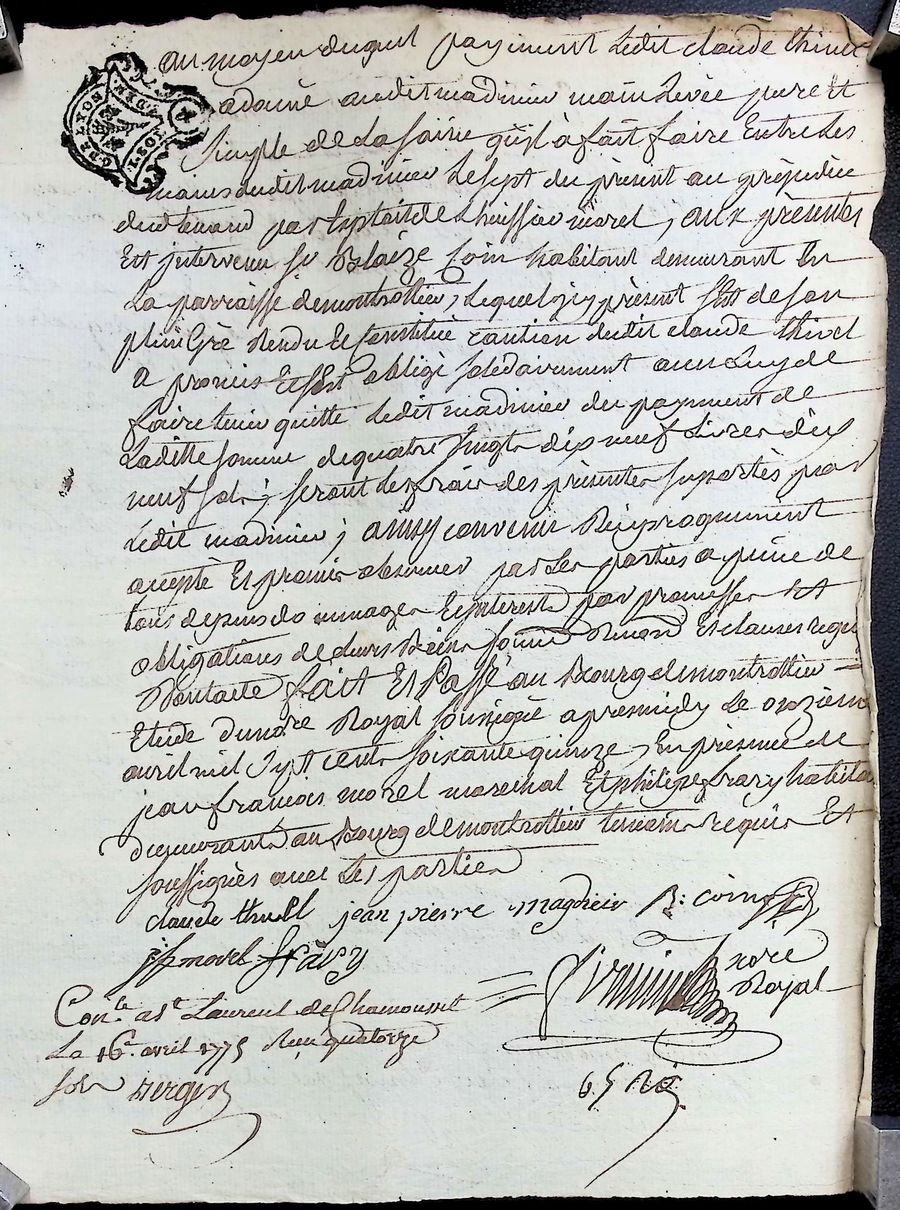 au moyen duquel payement Ledit claude thivel
adonné audit madinier main Levée pure Et
simple de La saisie qu'il à fait faire Entre Les
mains dudit madinier Le sept du présent au préjudice
par Exploit de L'huissier morel, aux présentes
Est jntervenu sr Blaize Coin habitant demeurant En
La parroisse de montrottier, Lequel jcy présent s'est de son
plein Gré Rendu Et Constitué caution dudit claude thivel
a promis Et s'est obligé solidairement avec Luy de
faire tenir quitte Ledit madinier du payement de
Laditte somme de quatre Vingt dix neuf Livres dix
neuf sols; seront Les frais des présentes suportés par
Ledit madinier; ainsy convenu Réciproquement
accepté Et promis observer par Les parties a peine de
tous depens dommages Et jnterests par promesses Et
obligations de Leurs Biens soumis Renon Et clauses requi
fait Et Passé au Bourg de montrottier
Etude du nore Royal soussigné apres midy Le onzieme
avril mil sept cent soixante quinze, En présence de
jean françois morel marechal Et philippe frary habita
demeurants au Bourg de montrottier temoins requis Et
soussignés avec Les parties
claude thivel jean pierre magdinier B: coin
jf morel frary
nore
Royal
Conlé a st Laurent de Chamousset
La 16e. avril 1775 Reçu quatorze
sols Berger